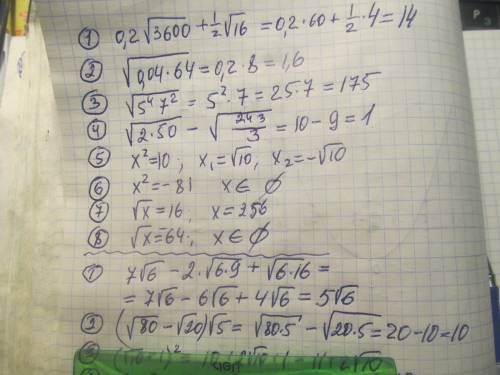 ① 0,2√3600 + 1/2 √16 = 0,2·60 + 1/2·4 = 14
② √0,04·64 = 0,2·8 = 1,6
③ √5⁴7² = 5²·7 = 25·7 = 175
④ √2·50 − √243/3 = 10 − 9 = 1
⑤ x²=10; x₁=√10, x₂=−√10
⑥ x²=−81 x∈ ∅
⑦ √x=16; x=256
⑧ √x=64; x∈∅
① 7√6 − 2·√6·9 + √6·16 =
= 7√6 − 6√6 + 4√6 = 5√6
② (√80 − √20)√5 = √80·5 − √20·5 = 20−10=10